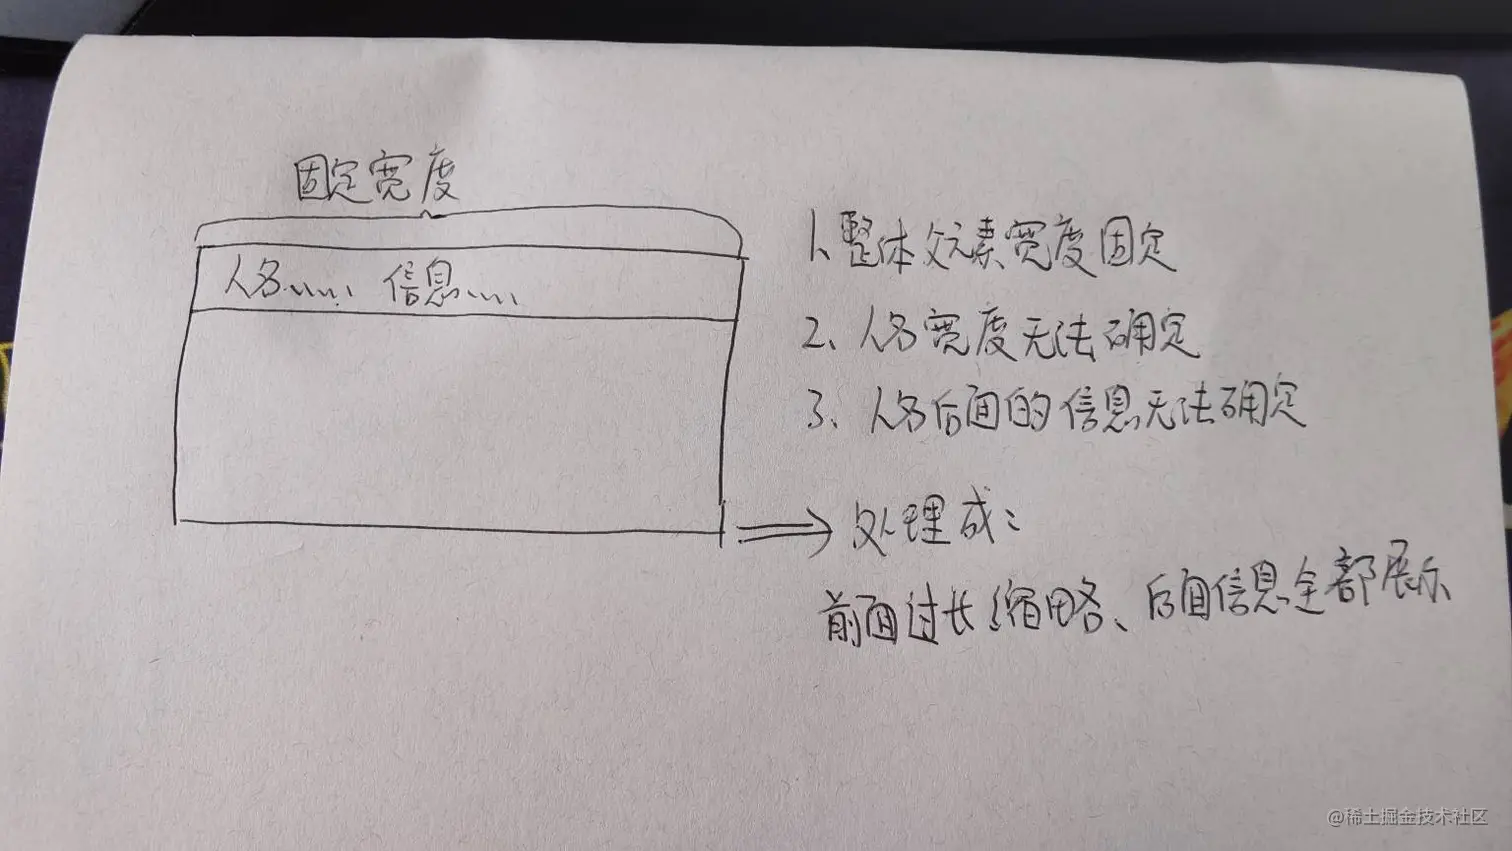 固定宽度
人名...... 信息......
1、整体父元素宽度固定
2、人名宽度无法确定
3、人名后面的信息无法确定
处理成：
前面过长缩略、后面信息全部展示
@稀土掘金技术社区